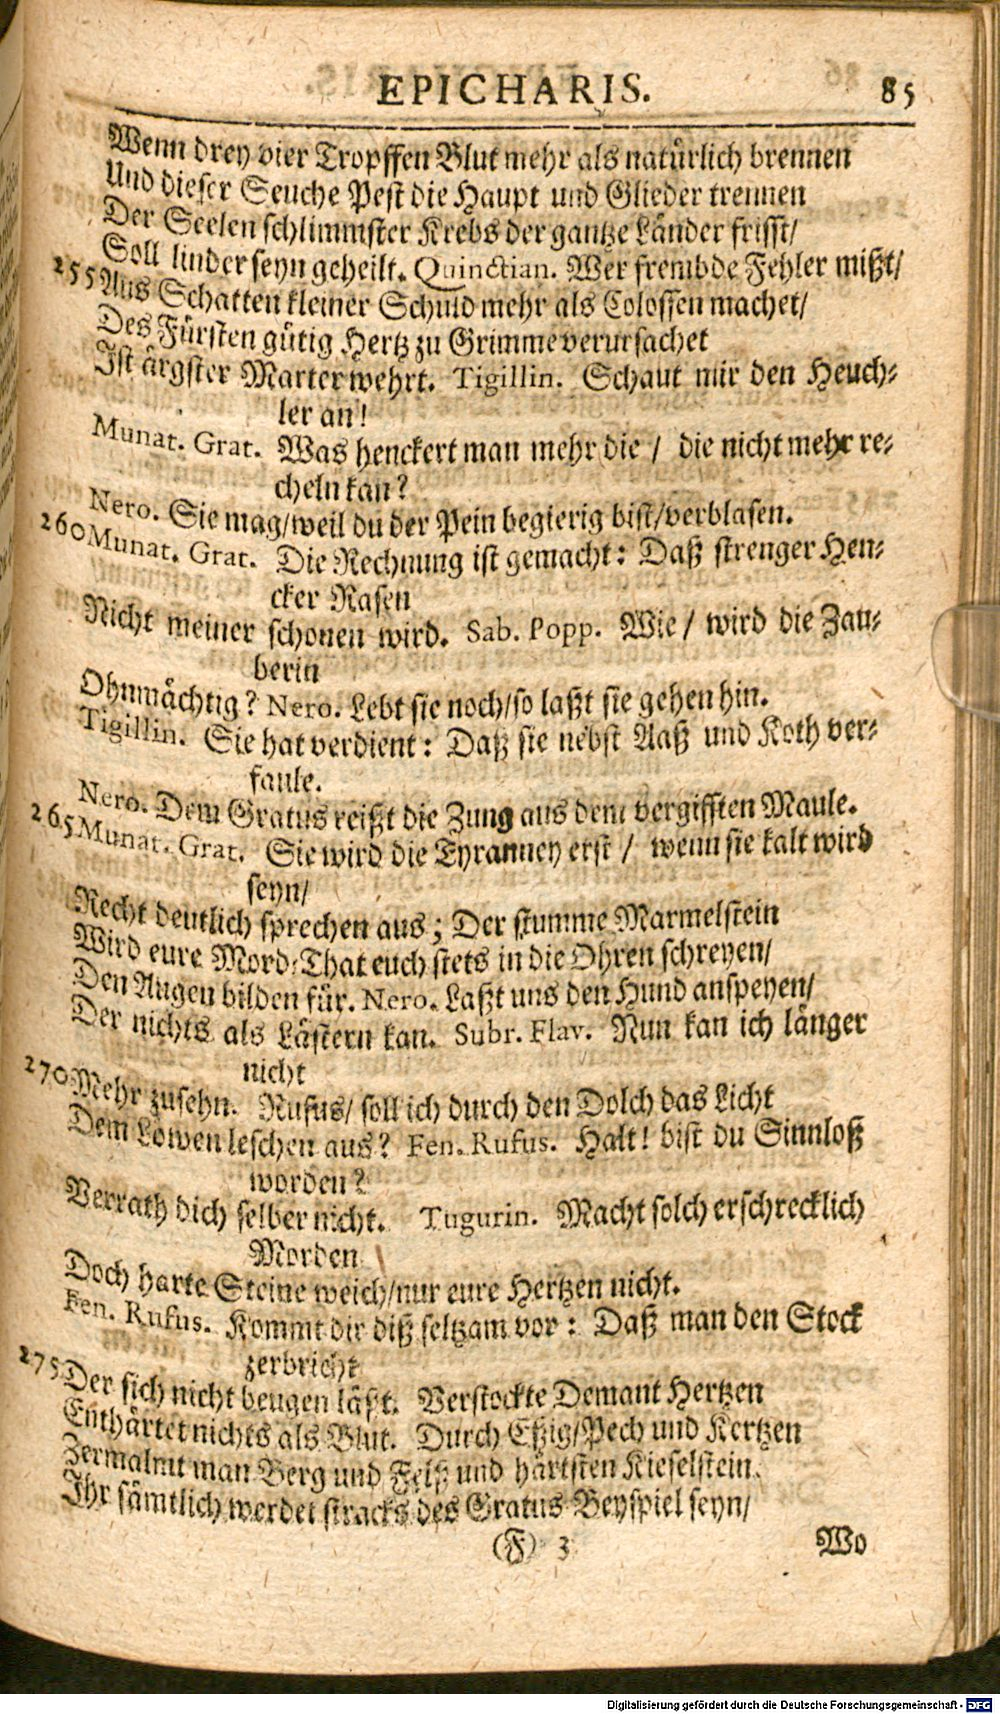 EPICHARIS. 85
Wenn drey vier Tropffen Blut mehr als natürlich brennen
Und dieser Seuche Pest die Haupt und Glieder trennen
Der Seelen schlimmster Krebs der gantze Länder frisst/
Soll linder seyn geheilt. Quinctian. Wer frembde Fehler mißt/
255 Aus Schatten kleiner Schuld mehr als Colossen machet/
Des Fürsten gütig Hertz zu Grimme verursachet
Ist ärgster Marter wehrt. Tigillin. Schaut mir den Heuch-
ler an!
Munat. Grat. Was henckert man mehr die / die nicht mehr re-
cheln kan?
Nero. Sie mag/weil du der Pein begierig bist/verblasen.
260 Munat. Grat. Die Rechnung ist gemacht: Daß strenger Hen-
cker Rasen
Nicht meiner schonen wird. Sab. Popp. Wie / wird die Zau-
berin
Ohnmächtig? Nero. Lebt sie noch/so laßt sie gehen hin.
Tigillin. Sie hat verdient: Daß sie nebst Aaß und Koth ver-
faule.
Nero. Dem Gratus reißt die Zung aus dem vergifften Maule.
265 Munat. Grat. Sie wird die Tyranney erst / wenn sie kalt wird
seyn/
Recht deutlich sprechen aus; Der stumme Marmelstein
Wird eure Mord-That euch stets in die Ohren schreyen/
Den Augen bilden für. Nero. Laßt uns den Hund anspeyen/
Der nichts als Lästern kan. Subr. Flav. Nun kan ich länger
nicht
270 Mehr zusehn. Rufus/ soll ich durch den Dolch das Licht
Dem Löwen leschen aus? Fen. Rufus. Halt! bist du Sinnloß
worden?
Verrath dich selber nicht. Tugurin. Macht solch erschrecklich
Morden
Doch harte Steine weich/nur eure Hertzen nicht.
Fen. Rufus. Kommt dir diß seltzam vor: Daß man den Stock
zerbricht
275 Der sich nicht beugen läßt. Verstockte Demant Hertzen
Enthärtet nichts als Blut. Durch Eßig/Pech und Kertzen
Zermalmt man Berg und Felß und härtsten Kieselstein.
Ihr sämtlich werdet stracks des Gratus Beyspiel seyn/
(F) 3 Wo
Digitalisierung gefördert durch die Deutsche Forschungsgemeinschaft - DFG